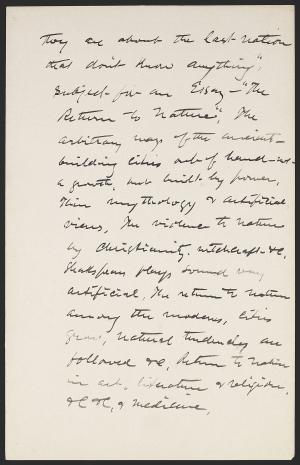 they are about the last nation
that don't know anything",
Subject for an Essay – "The
Return to Nature", The
arbitrary ways of the ancients –
building cities out of hand – not
a growth, but built by power,
Their mythology & artificial
views, The violence to nature
by Christianity. witchcraft &c,
Shakspeare plays sound very
artificial, The return to nature
among the moderns, cities
grow, natural tendencies are
followed &c, Return to Nature
in art, literature & religion,
&c &c, & medicine,